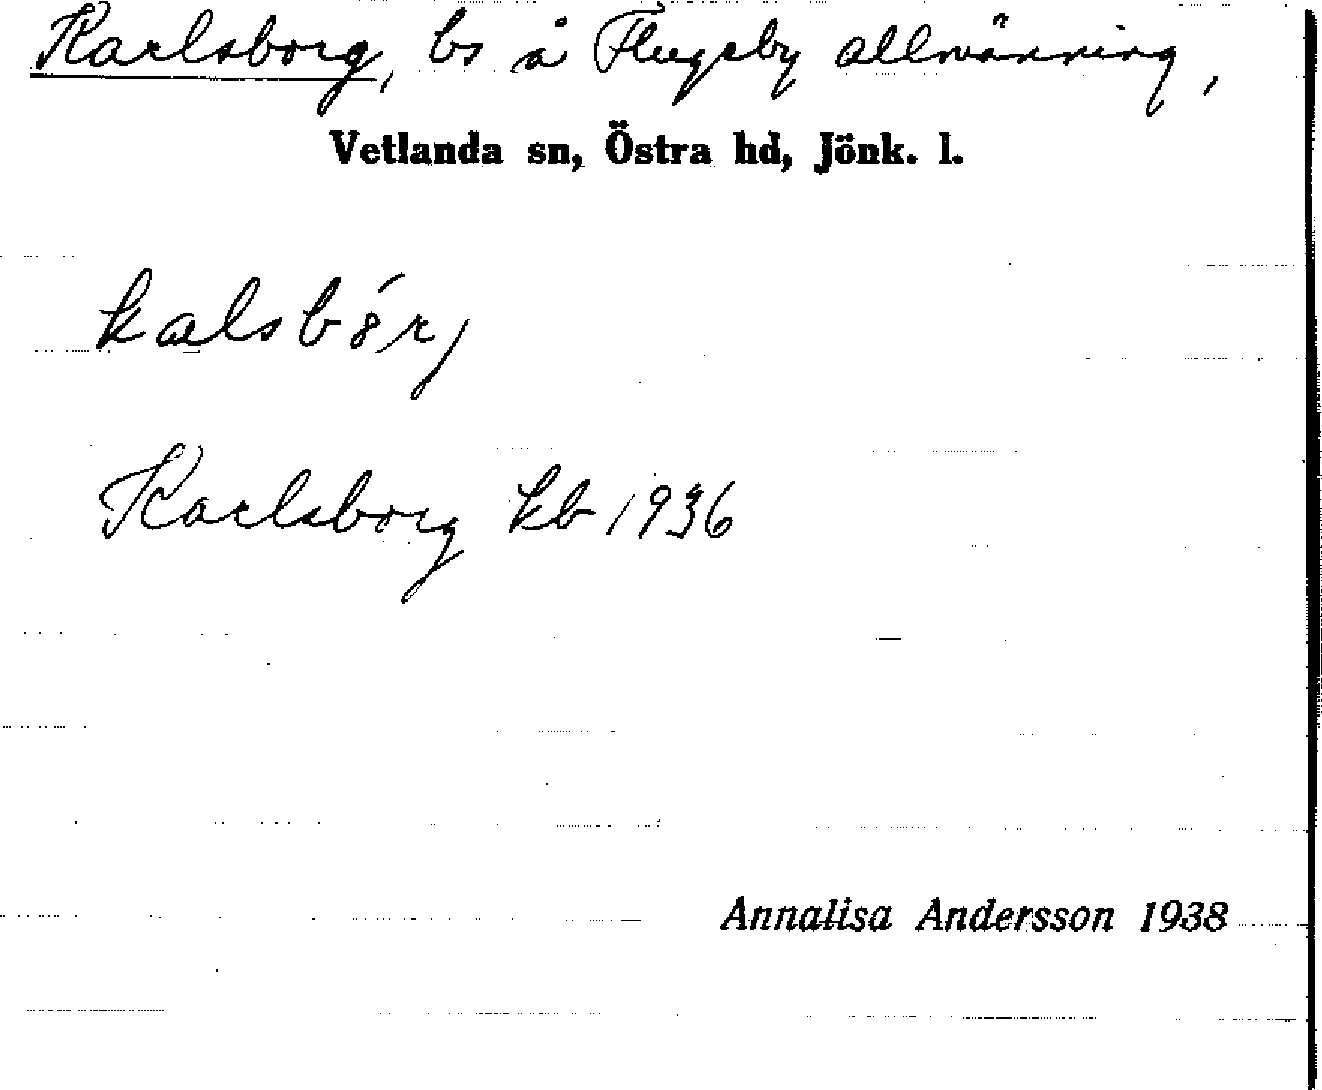 Karlsborg, bs å Flugeby allmänning,
Vetlanda sn, Östra hd, Jönk. l.
Karlsborg kb 1936
Annalisa Andersson 1938